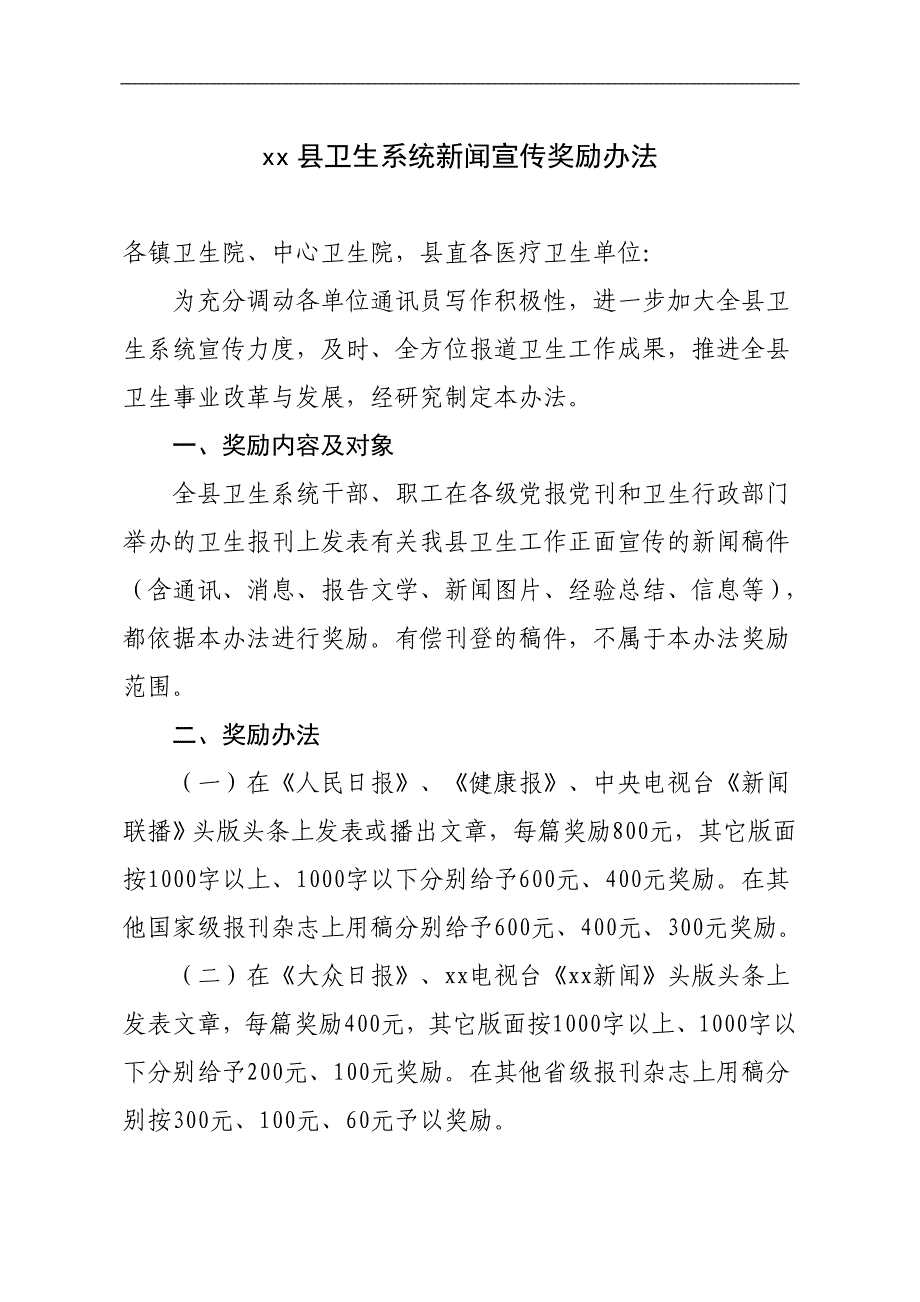 xx 县卫生系统新闻宣传奖励办法
各镇卫生院、中心卫生院，县直各医疗卫生单位：
为充分调动各单位通讯员写作积极性，进一步加大全县卫
生系统宣传力度，及时、全方位报道卫生工作成果，推进全县
卫生事业改革与发展，经研究制定本办法。
一、奖励内容及对象
全县卫生系统干部、职工在各级党报党刊和卫生行政部门
举办的卫生报刊上发表有关我县卫生工作正面宣传的新闻稿件
（含通讯、消息、报告文学、新闻图片、经验总结、信息等），
都依据本办法进行奖励。有偿刊登的稿件，不属于本办法奖励
范围。
二、奖励办法
（一）在《人民日报》、《健康报》、中央电视台《新闻
联播》头版头条上发表或播出文章，每篇奖励800元，其它版面
按1000字以上、1000字以下分别给予600元、400元奖励。在其
他国家级报刊杂志上用稿分别给予600元、400元、300元奖励。
（二）在《大众日报》、xx电视台《xx新闻》头版头条上
发表文章，每篇奖励400元，其它版面按1000字以上、1000字以
下分别给予200元、100元奖励。在其他省级报刊杂志上用稿分
别按300元、100元、60元予以奖励。